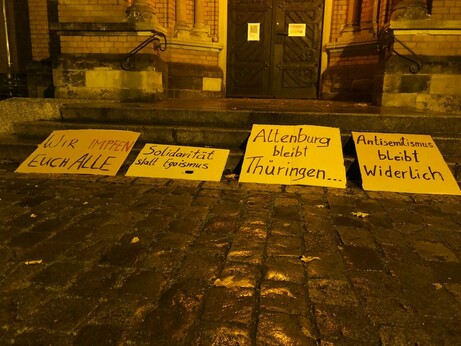 WIR IMPFEN
EUCH ALLE
Solidarität
statt Egoismus
Altenburg
bleibt
Thüringen...
Antisemitismus
bleibt
Widerlich